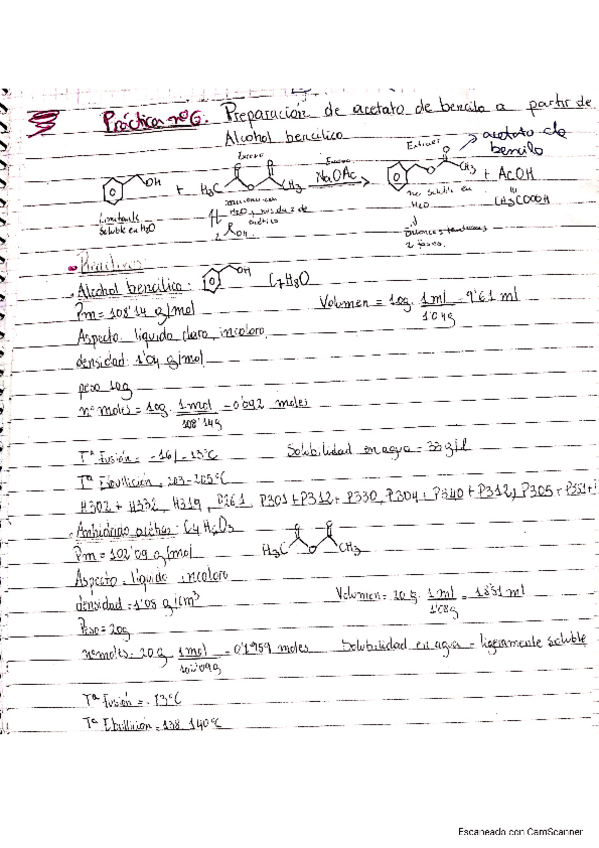 Práctica nº6. Preparación de acetato de bencilo a partir de
Alcohol bencílico
Exceso Exceso Extraer acetato de bencilo
OH + H3C O O O CH3 NaOAc O O CH3 + AcOH
CH3COOH
Limitante
Soluble en H2O
H2O
2 ROH
H2O
2 fases
Reactivos:
Alcohol bencílico: OH C7H8O
Pm = 108'14 g/mol Volumen = 10g. 1ml = 9'61 ml
1'04g
Aspecto líquido claro, incoloro
densidad 1'04 g/mol
peso 10g
nº moles = 10g. 1mol = 0'092 moles
108'14g
Tª Fusión = -16/-13ºC Solubilidad en agua = 33 g/l
Tª Ebullición, 203-205ºC
H302 + H332, H319, P261, P301+P312+P330, P304+P340+P312, P305+P351+
Anhídrido acético: C4H6O3
H3C O O O CH3
Pm = 102'09 g/mol
Aspecto líquido incoloro
densidad = 1'08 g/cm3 Volumen = 20g. 1ml = 18'51 ml
1'08g
Peso = 20g
nº moles = 20g. 1mol = 0'1959 moles Solubilidad en agua = ligeramente soluble
102'09g
Tª Fusión = -73ºC
Tª Ebullición = 138-140ºC
Escaneado con CamScanner